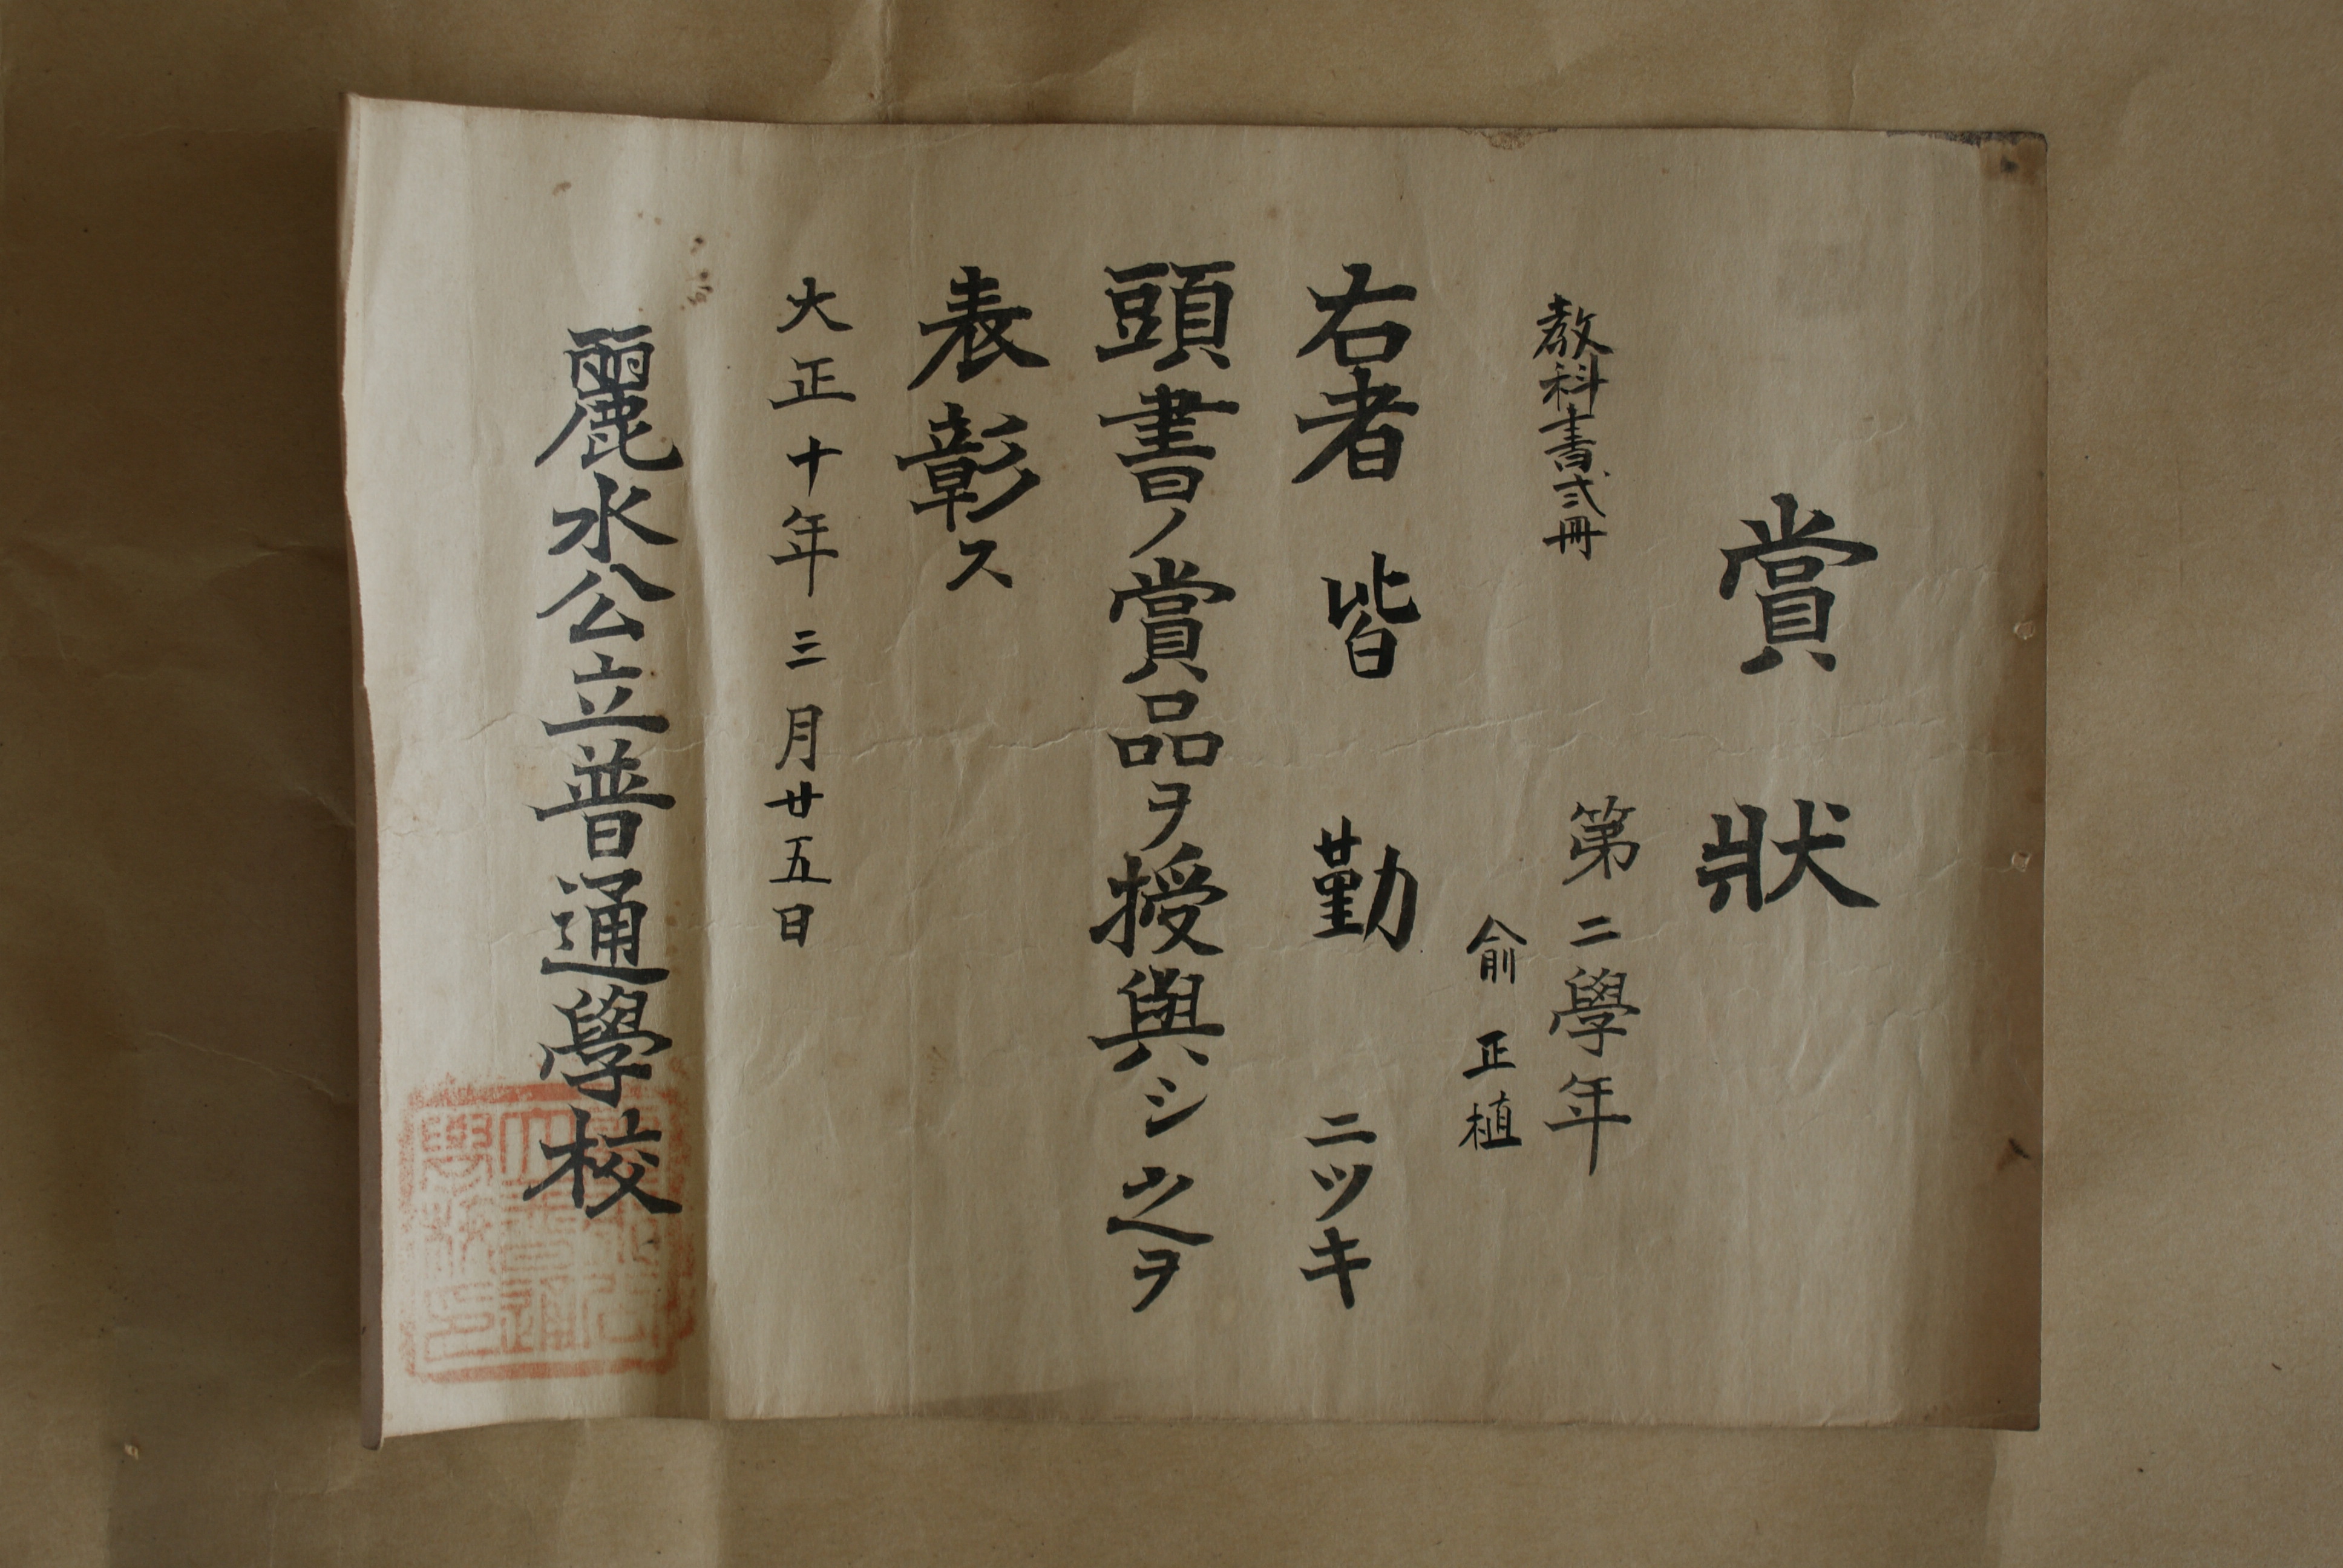 賞狀
第二學年
敎科書弐冊
俞正植
右者皆勤ニツキ
頭書ノ賞品ヲ授與シ之ヲ
表彰ス
大正十年三月廿五日
麗水公立普通學校
麗水公立普通學校印